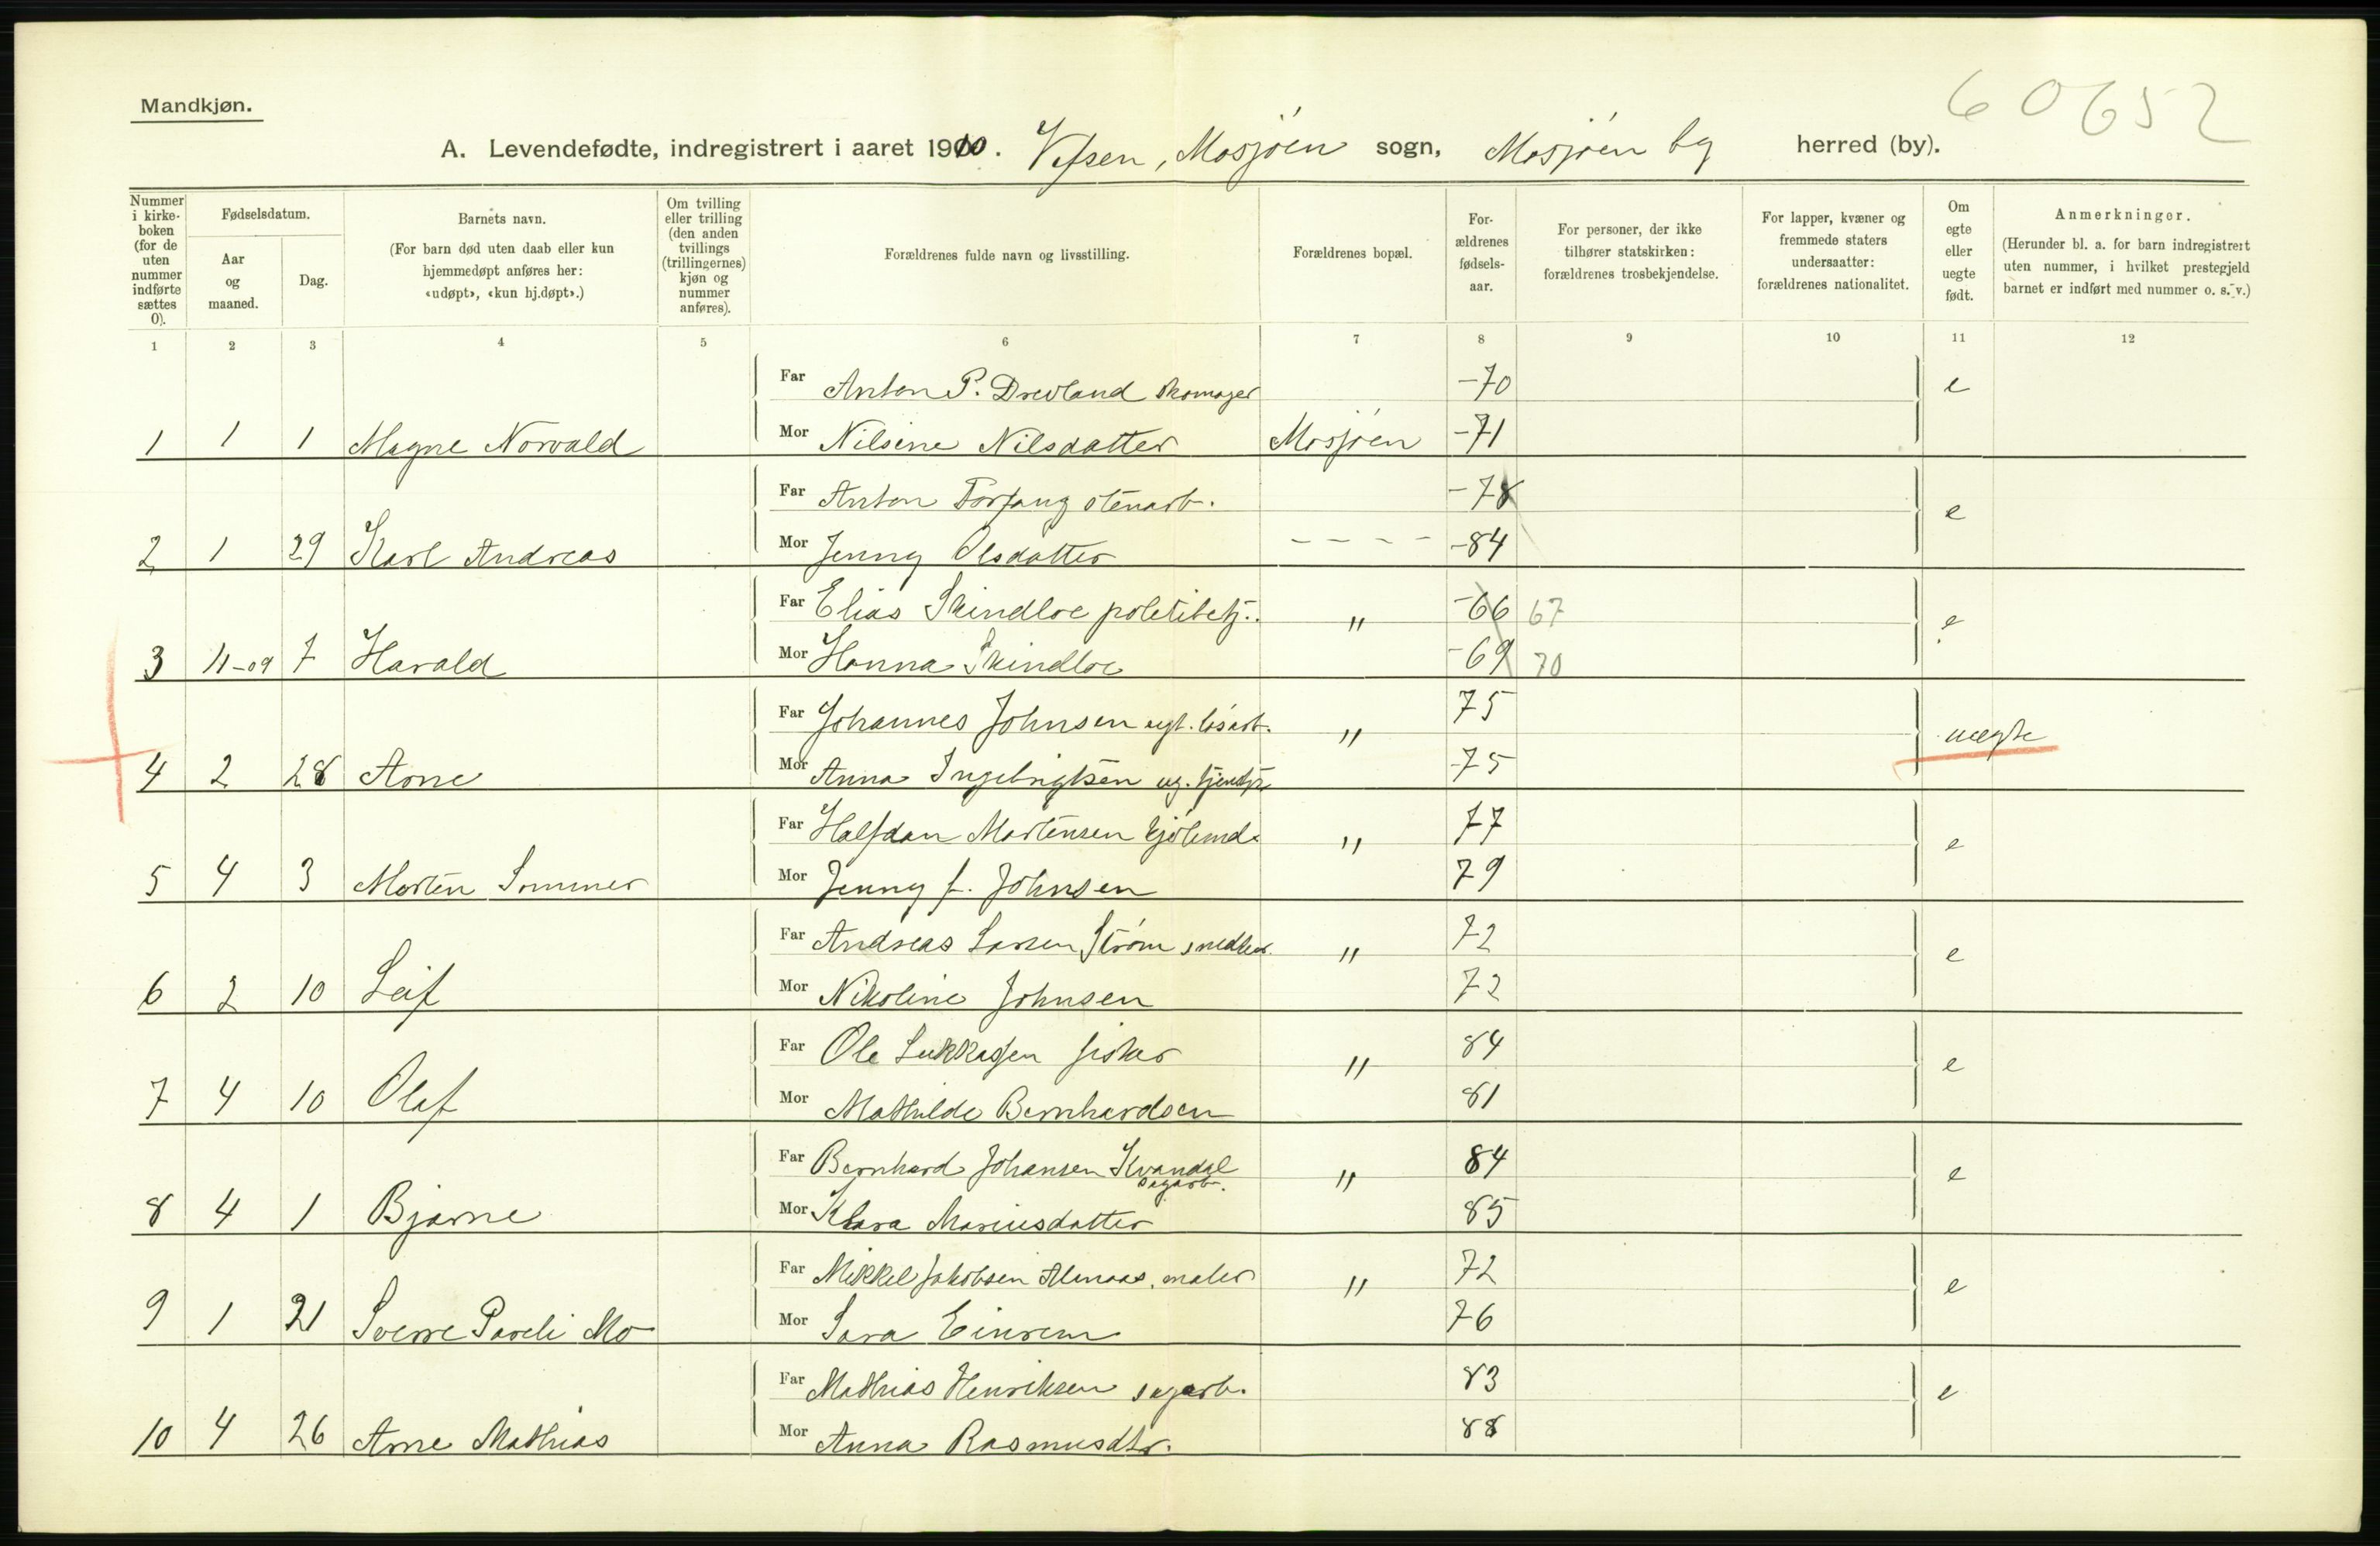 Mandkjøn.
60652
A. Levendefødte, indregistrert i aaret 1910. Vefsen, Mosjøen sogn, Mosjøen by herred (by).
Nummer i kirke- boken (for de uten nummer indførte sættes 0).
Fødselsdatum.
Aar og maaned.
Dag.
Barnets navn.
(For barn død uten daab eller kun hjemmedøpt anføres her: «udøpt», «kun hj.døpt».)
Om tvilling eller trilling (den anden tvillings (trillingernes) kjøn og nummer anføres).
Forældrenes fulde navn og livsstilling.
Forældrenes bopæl.
For- ældrenes fødsels- aar.
For personer, der ikke tilhører statskirken: forældrenes trosbekjendelse.
For lapper, kvæner og fremmede staters undersaatter: forældrenes nationalitet.
Om egte eller uegte født.
Anmerkninger.
(Herunder bl. a. for barn indregistrert uten nummer, i hvilket prestegjeld barnet er indført med nummer o. s. v.)
1 2 3 4 5 6 7 8 9 10 11 12
Far Anton P. Drevland skomager -70 e
1 1 1 Magne Norvald Mor Nilsine Nilsdatter Mosjøen -71
Far Anton Forfang stenarb. -78 e
2 1 29 Karl Andreas Mor Jenny Olsdatter - - - - -84
Far Elias Skindloe politibetj. " -66 67 e
3 11-09 7 Harald Mor Hanna Skindloe -69 70
Far Johannes Johnsen ugt. løsarb. " 75 uegte
4 2 28 Arne Mor Anna Ingebrigtsen ug. -75
Far Halfdan Martensen kjøbmd. " 77 e
5 4 3 Morten Sommer Mor Jenny f. Johnsen 79
Far Andreas Larsen Strøm snedker. " 72 e
6 2 10 Leif Mor Nikoline Johnsen 72
Far Ole Lukkassen fisker " 84 e
7 4 10 Olaf Mor Mathilde Bernhardsen 81
Far Bernhard Johansen Kvandal " 84 e
sagarb.
8 4 1 Bjarne Mor Klara Mariusdatter 85
Far Mikkel Jakobsen Almaas, maler " 72 e
9 1 21 Sverre Pareli Mo Mor Sara Einrem 76
Far Mathias Henriksen sagarb. 83 e
10 4 26 Arne Mathias Mor Anna Rasmusdtr. 88